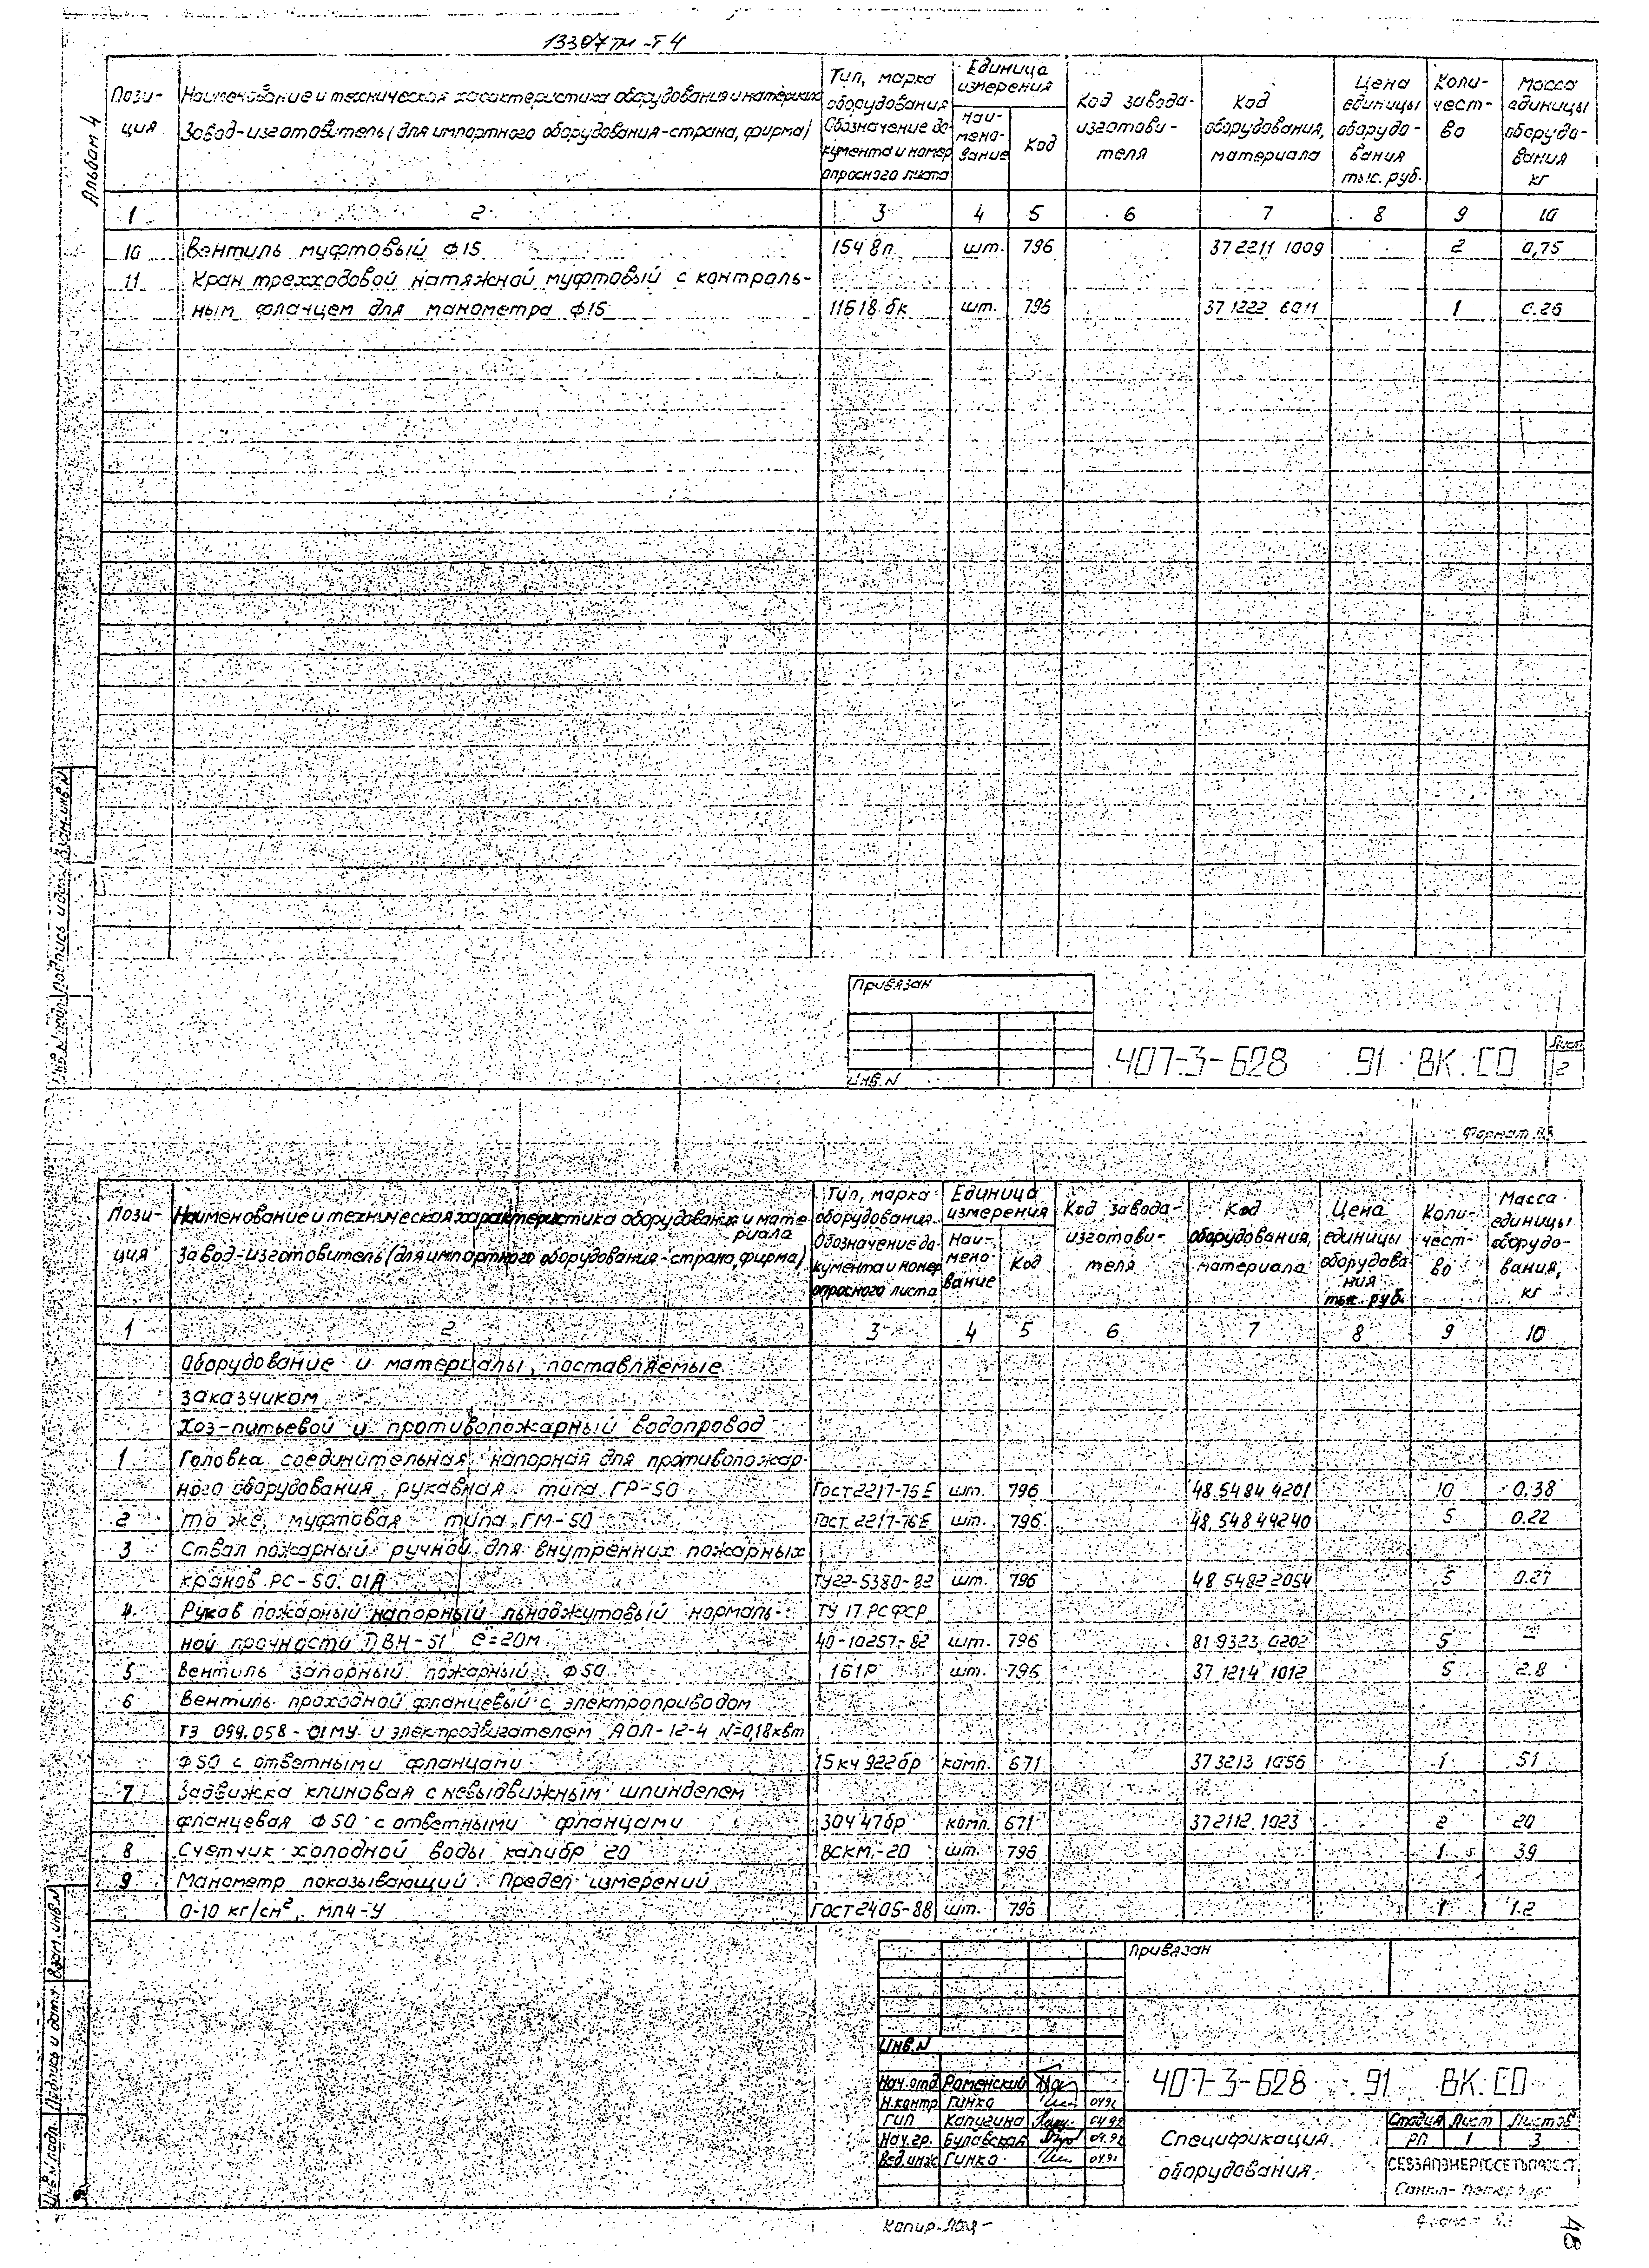 13307тм-т4
Альбом 4
Пози-
ция
Наименование и техническая характеристика оборудования и материала
Завод-изготовитель (для импортного оборудования-страна, фирма)
Тип, марка
оборудования
Обозначение до-
кумента и номер
опросного листа
Единица
измерения
Наи-
мено-
вание
Код
Код завода-
изготови-
теля
Код
оборудования,
материала
Цена
единицы
оборудо-
вания
тыс. руб.
Коли-
чест-
во
Масса
единицы
оборудо-
вания
кг
1 2 3 4 5 6 7 8 9 10
10 Вентиль муфтовый Ф15 15ч8п шт. 796 37 2211 1009 2 0,75
11 Кран трехходовой натяжной муфтовый с контроль-
ным фланцем для манометра Ф15 11Б18бк шт. 796 37 1222 6011 1 0.26
Взам.инв.N
Подпись и дата
Инв.N подл.
Привязан
Инв.N
407-3-628 .91 ВК.СО
Лист
2
Формат А3
Пози-
ция
Наименование и техническая характеристика оборудования и мате-
риала
Завод-изготовитель (для импортного оборудования-страна, фирма)
Тип, марка
оборудования.
Обозначение до-
кумента и номер
опросного листа
Единица
измерения
Наи-
мено-
вание
Код
Код завода-
изготови-
теля
Код
оборудования,
материала
Цена
единицы
оборудова
ния
тыс. руб.
Коли-
чест-
во
Масса
единицы
оборудо-
вания,
кг
1 2 3 4 5 6 7 8 9 10
Оборудование и материалы, поставляемые
заказчиком
Хоз-питьевой и противопожарный водопровод
1 Головка соединительная напорная для противопожар-
ного оборудования рукавная типа ГР-50 Гост 2217-76Е шт. 796 48.5484 4201 10 0.38
2 То же, муфтовая типа ГМ-50 Гост 2217-76Е шт. 796 48.5484 4240 5 0.22
3 Ствол пожарный ручной для внутренних пожарных
кранов РС-50.01А ТУ22-5380-82 шт. 796 48 5482 2054 5 0.27
4. Рукав пожарный напорный льноджутовый нормаль- ТУ 17 РСФСР
ной прочности ПВН-51 ℓ=20м 40-10257-82 шт. 796 81 9323 0202 5 —
5 Вентиль запорный пожарный Ф50 1Б1Р шт. 796 37 1214 1012 5 2.8
6 Вентиль проходной фланцевый с электроприводом
ТЭ 099.058-01МУ и электродвигателем АОЛ-12-4 N=0,18квт
Ф50 с ответными фланцами 15кч922бр комп. 671 37 3213 1056 1 51
7 Задвижка клиновая с невыдвижным шпинделем
фланцевая Ф50 с ответными фланцами 30ч47бр комп. 671 37 2112 1023 2 20
8 Счетчик холодной воды калибр 20 ВСКМ-20 шт. 796 1 39
9 Манометр показывающий Предел измерений
0-10 кг/см², МП4-У Гост 2405-88 шт. 796 1 1.2
Взам.инв.N
Подпись и дата
Инв.N подл.
Привязан
Инв.N
Нач.отд Роменский
Н.контр Гинко 04.92
ГИП Капугина 04.92
Нач.гр. Булавская 04.92
Вед.инж Гинко 04.92
407-3-628 .91 ВК.СО
Спецификация
оборудования.
Стадия Лист Листов
РП 1 3
СЕВЗАПЭНЕРГОСЕТЬПРОЕКТ
Санкт-Петербург
Копир.
Формат А3
48